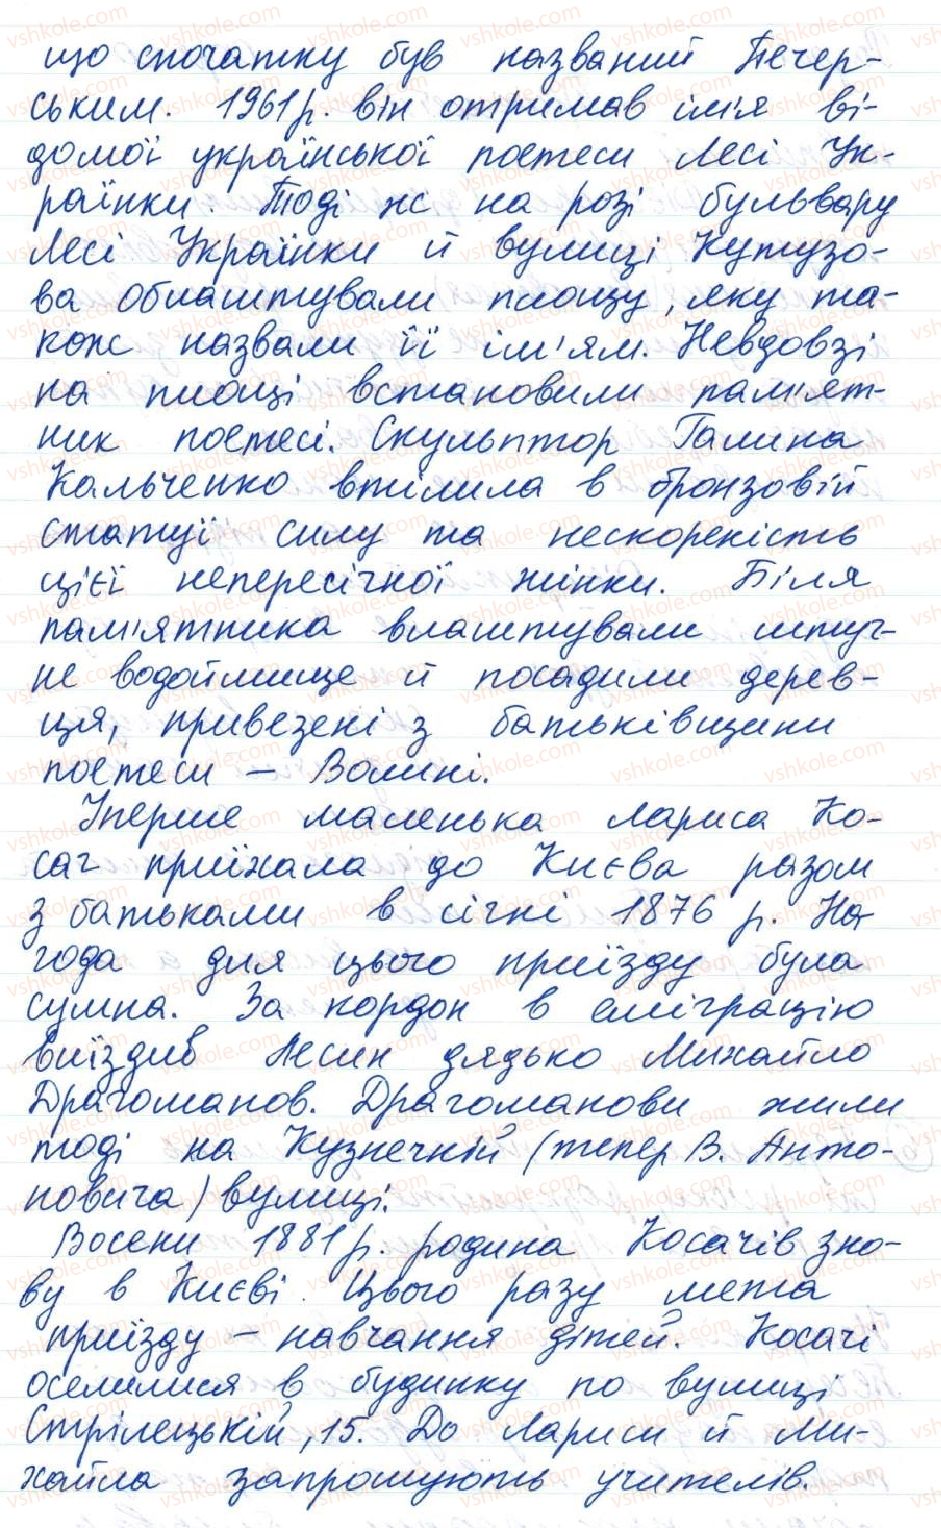 що спочатку був названий Печер-
ським. 1961 р. він отримав ім'я ві-
домої української поетеси Лесі Ук-
раїнки. Тоді ж на розі бульвару
Лесі Українки й вулиці Кутузо-
ва облаштували площу, яку та-
кож назвали її ім'ям. Невдовзі
на площі встановили пам'ят-
ник поетесі. Скульптор Галина
Кальченко втілила в бронзовій
статуї силу та нескореність
цієї непересічної жінки. Біля
пам'ятника влаштували штуч-
не водоймище й посадили дерев-
ця, привезені з батьківщини
поетеси – Волині.
Уперше маленька Лариса Ко-
сач приїхала до Києва разом
з батьками в січні 1876 р. На-
года для цього приїзду була
сумна. За кордон в еміграцію
виїздив Лесин дядько Михайло
Драгоманов. Драгоманови жили
тоді на Кузнечній (тепер В. Анто-
новича) вулиці.
Восени 1881 р. родина Косачів зно-
ву в Києві. Цього разу мета
приїзду – навчання дітей. Косачі
оселилися в будинку по вулиці
Стрілецькій, 15. До Лариси й Ми-
хайла запрошують учителів.